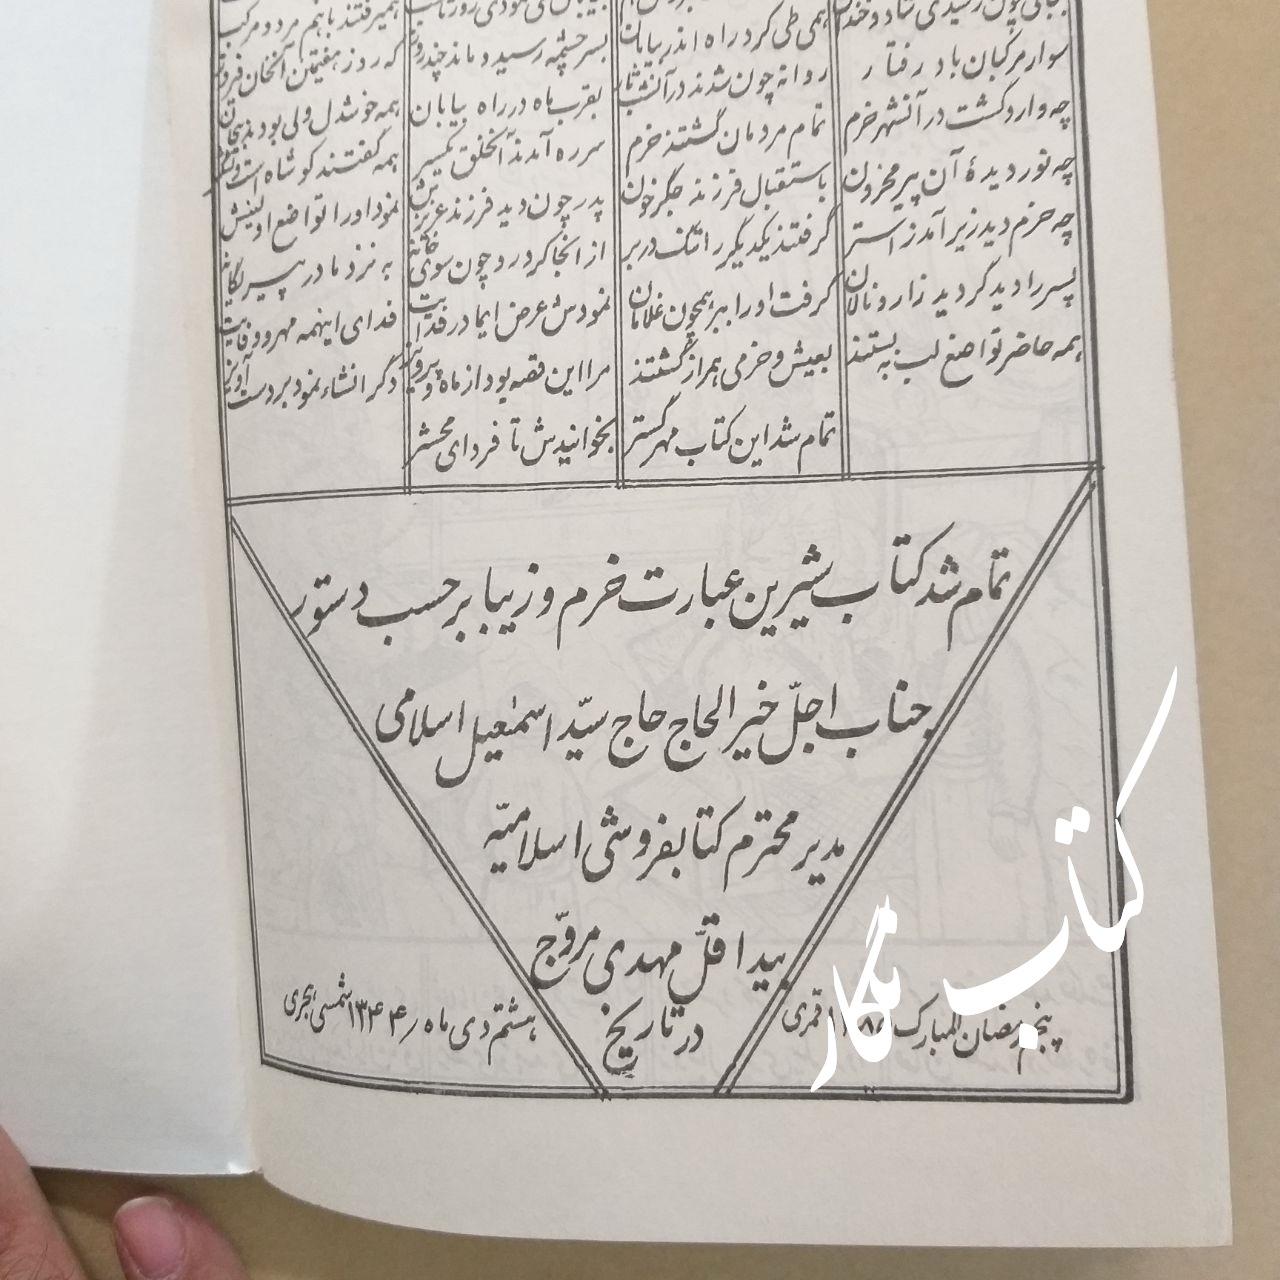 سوار مرکبان باد رفتار همی طی کرد راه اندر بیابان بسر چشمه رسید و ماند چندروز که روز هفتمین آنخان فیروز
چه وارد گشت در آنشهر خرم روانه چون شدند در آنشب تار بقرب ماه در راه بیابان همه خوشدل ولی بود
چه نور دیدهٔ آن پیر محزون تمام مردمان گشتند خرم سر ره آمدند آنخلق یکسر همه گفتند کو شاه است
چه خرم دید زیر آمد ز استر باستقبال فرزند جگرخون پدر چون دید فرزند عزیزش نمود او را تواضع او
پسر را دید گردید زار و نالان گرفتند یکدیگر را تنگ در بر از آنجا کرد رو چون سوی خانه به نزد مادر پیر
همه حاضر تواضع لب به بستند گرفت او را ببر همچون غلامان نمودش عرض ایمادر فدایت فدای اینهمه مهر و وفایت
بعیش و خرمی همراز گشتند مرا این قصه بود از ماه و پروین دگر انشاء نمود بر دست
تمام شد این کتاب مهر گستر بخوانیدش تا فردای محشر
تمام شد کتاب شیرین عبارت خرم و زیبا بر حسب دستور
جناب اجلّ خیر الحاج حاج سیّد اسمٰعیل اسلامی
مدیر محترم کتابفروشی اسلامیّه
بید اقلّ مهدی مروّج
در تاریخ
پنجم رمضان المبارک قمری
هشتم دی ماه ۱۳۴۴ شمسی هجری
کتاب نگار